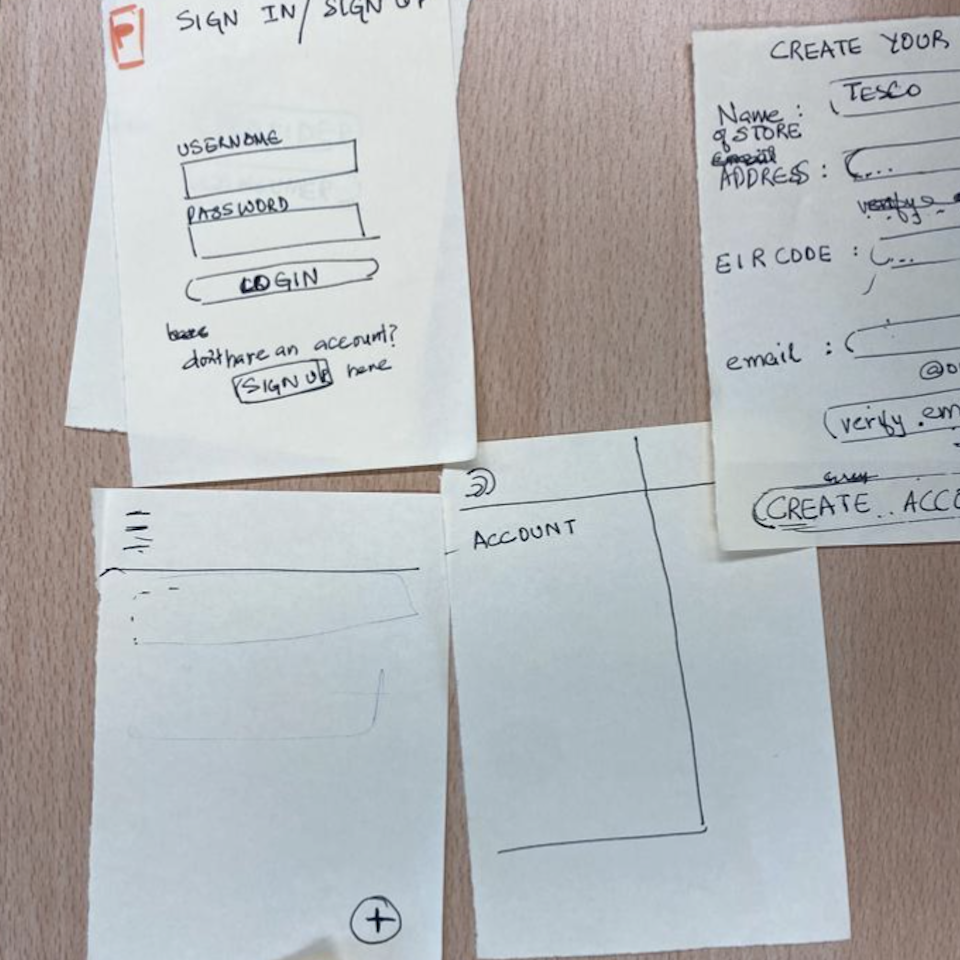 P
SIGN IN/ SIGN UP
USERNAME
PASSWORD
LOGIN
don't have an account?
SIGN UP here
CREATE YOUR
Name :
of STORE
TESCO
email
ADDRESS : ...
verify
EIRCODE : ...
email :
@
verify em
CREATE ACCO
ACCOUNT
+